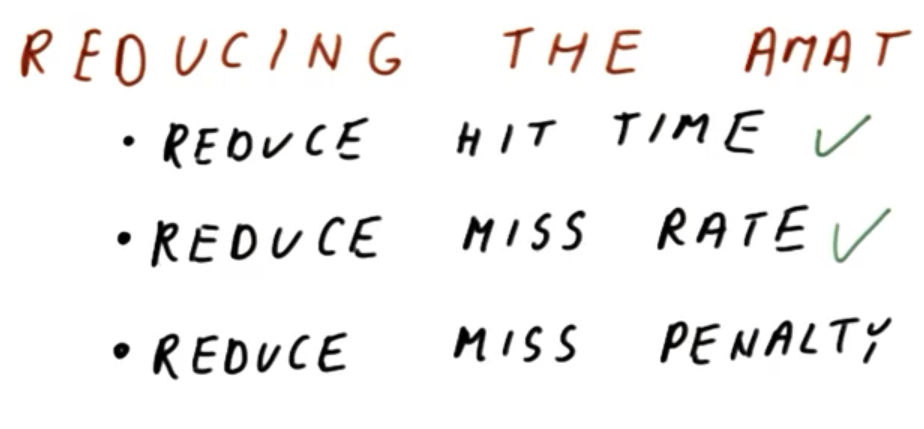 REDUCING THE AMAT
• REDUCE HIT TIME ✓
• REDUCE MISS RATE ✓
• REDUCE MISS PENALTY